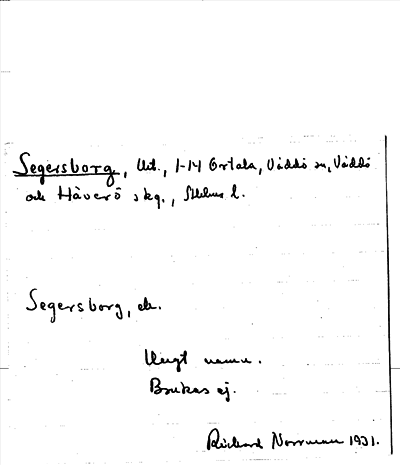 Segersborg, Utt., 1-14 Ortala, Väddö sn, Väddö
och Häverö skg., Sthlms l.
Segersborg, ek.
Ungt namn.
Brukas ej.
Rickard Norrman 1931.